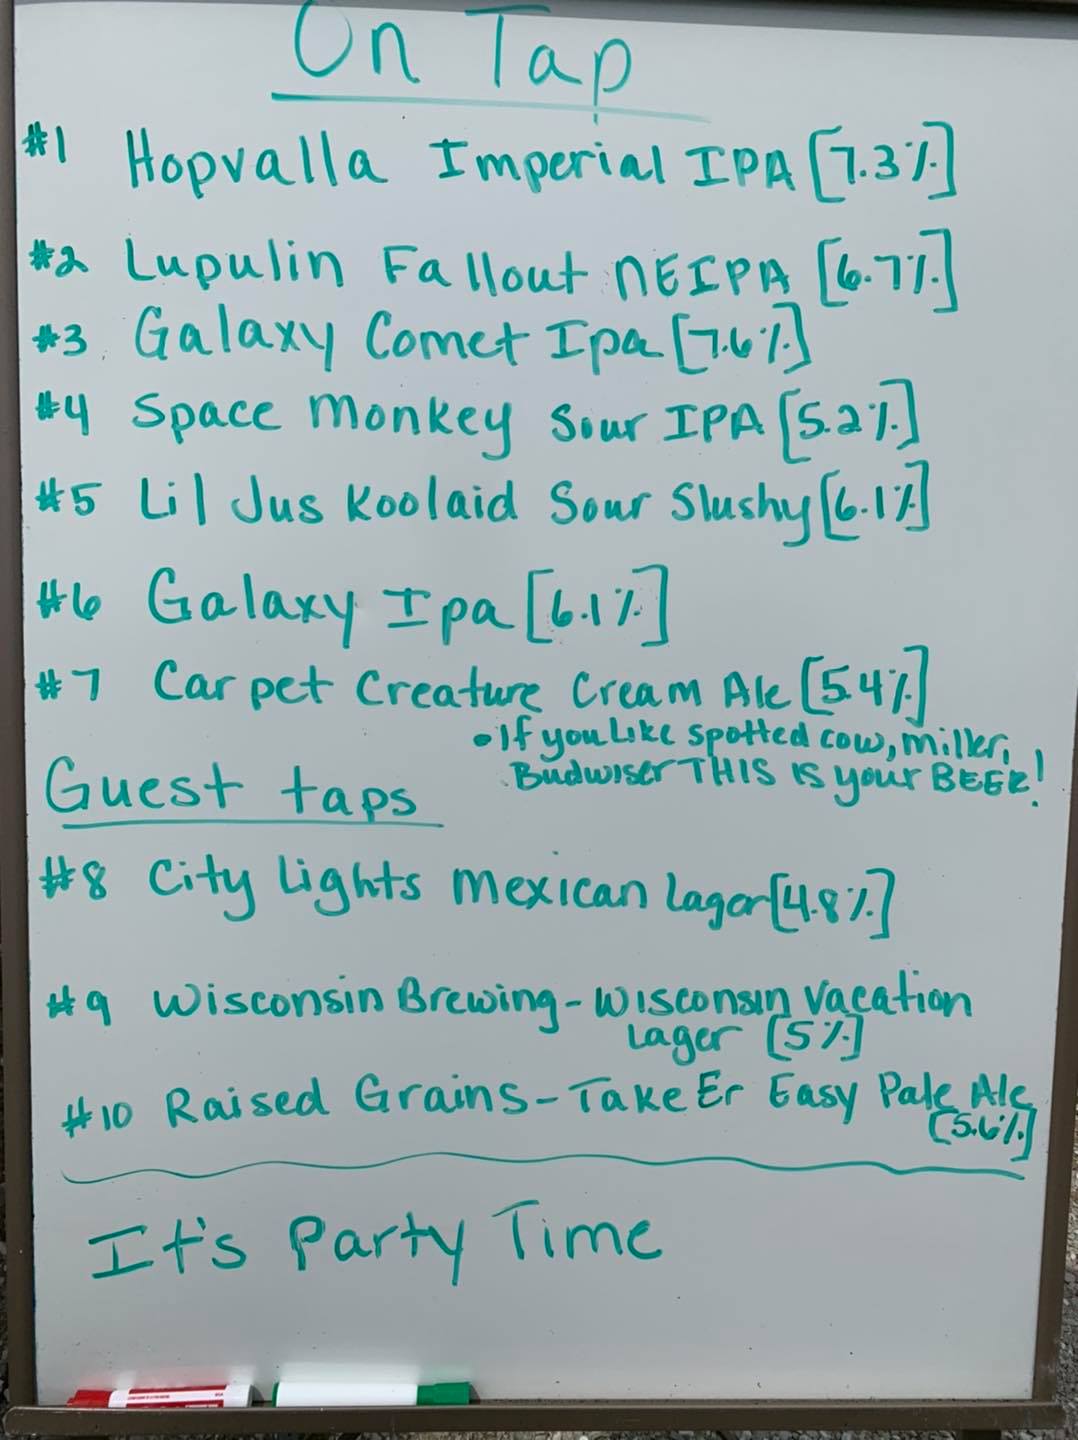 On Tap
#1 Hopvalla Imperial IPA [7.3%]
#2 Lupulin Fallout NEIPA [6.7%]
#3 Galaxy Comet Ipa [7.6%]
#4 Space Monkey Sour IPA [5.2%]
#5 Lil Jus Koolaid Sour Slushy [6.1%]
#6 Galaxy Ipa [6.1%]
#7 Carpet Creature Cream Ale [5.4%]
• If you Like spotted cow, miller,
Budwiser THIS IS your BEER!
Guest taps
#8 City Lights Mexican Lager [4.8%]
#9 Wisconsin Brewing - Wisconsin Vacation
Lager [5%]
#10 Raised Grains - Take Er Easy Pale Ale
[5.6%]
It's Party Time